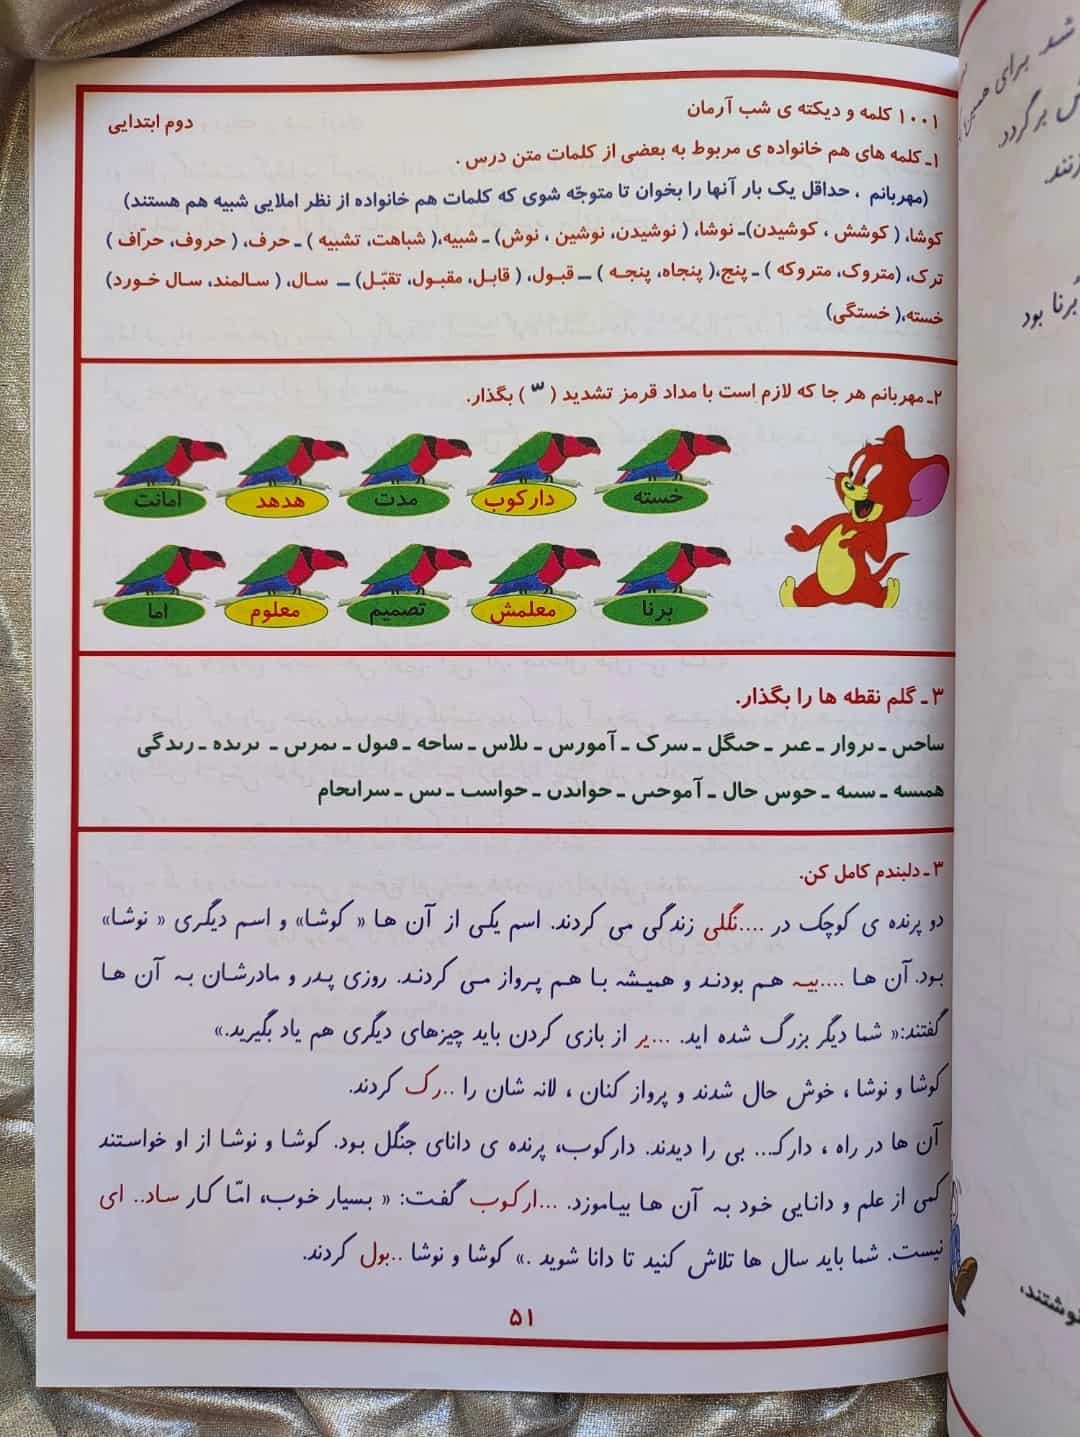 ۱۰۰۱ کلمه و دیکته ی شب آرمان
دوم ابتدایی
۱ـ کلمه های هم خانواده ی مربوط به بعضی از کلمات متن درس .
(مهربانم ، حداقل یک بار آنها را بخوان تا متوجّه شوی که کلمات هم خانواده از نظر املایی شبیه هم هستند)
کوشا، ( کوشش ، کوشیدن)ـ نوشا، ( نوشیدن، نوشین ، نوش) ـ شبیه،( شباهت، تشبیه ) ـ حرف، ( حروف، حرّاف )
ترک، (متروک، متروکه ) ـ پنج،( پنجاه، پنجـه ) ــ قبـول، ( قابل، مقبـول، تقبّـل) ــ سـال، ( سـالمند، سـال خـورد)
خسته،( خستگی)
۲ـ مهربانم هر جا که لازم است با مداد قرمز تشدید ( ّ ) بگذار.
خسته دارکوب مدت هدهد امانت
برنا معلمش تصمیم معلوم اما
۳ ـ گلم نقطه ها را بگذار.
۳ ـ دلبندم کامل کن.
دو پرنده ی کوچک در ....نگلی زندگی می کردند. اسم یکی از آن ها « کوشا» و اسم دیگری « نوشا»
بود. آن ها ....بیـه هم بودند و همیشه با هم پرواز می کردند. روزی پدر و مادرشان به آن ها
گفتند:« شما دیگر بزرگ شده اید. ...یر از بازی کردن باید چیزهای دیگری هم یاد بگیرید.»
کوشا و نوشا ، خوش حال شدند و پرواز کنان ، لانه شان را ..رک کردند.
آن ها در راه ، دارکـ... بی را دیدند. دارکوب، پرنده ی دانای جنگل بود. کوشا و نوشا از او خواستند
کمی از علم و دانایی خود به آن ها بیاموزد. ...ارکوب گفت: « بسیار خوب، امّا کار ساد.. ای
نیست. شما باید سال ها تلاش کنید تا دانا شوید .» کوشا و نوشا ..بول کردند.
۵۱
شد برای
برگردد
برنا بود
نوشتند،